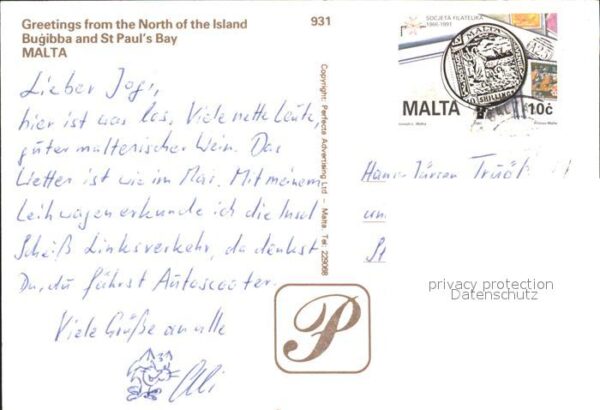 Greetings from the North of the Island
Buġibba and St Paul's Bay
MALTA
931
Lieber Jogi,
hier ist was los. Viele nette Leute,
guter maltesischer Wein. Das
Wetter ist wie im Mai. Mit meinem
Leihwagen erkunde ich die Insel
Scheiß Linksverkehr, da denkst
Du, du fährst Autoscooter.
Viele Grüße an alle
Uli
Copyright: Perfecta Advertising Ltd - Malta. Tel: 229068
P
SOCJETÀ FILATELIKA
1966-1991
MALTA
SHILLING
MALTA 10c
Printex Malta
Hans-Jürgen
privacy protection
Datenschutz